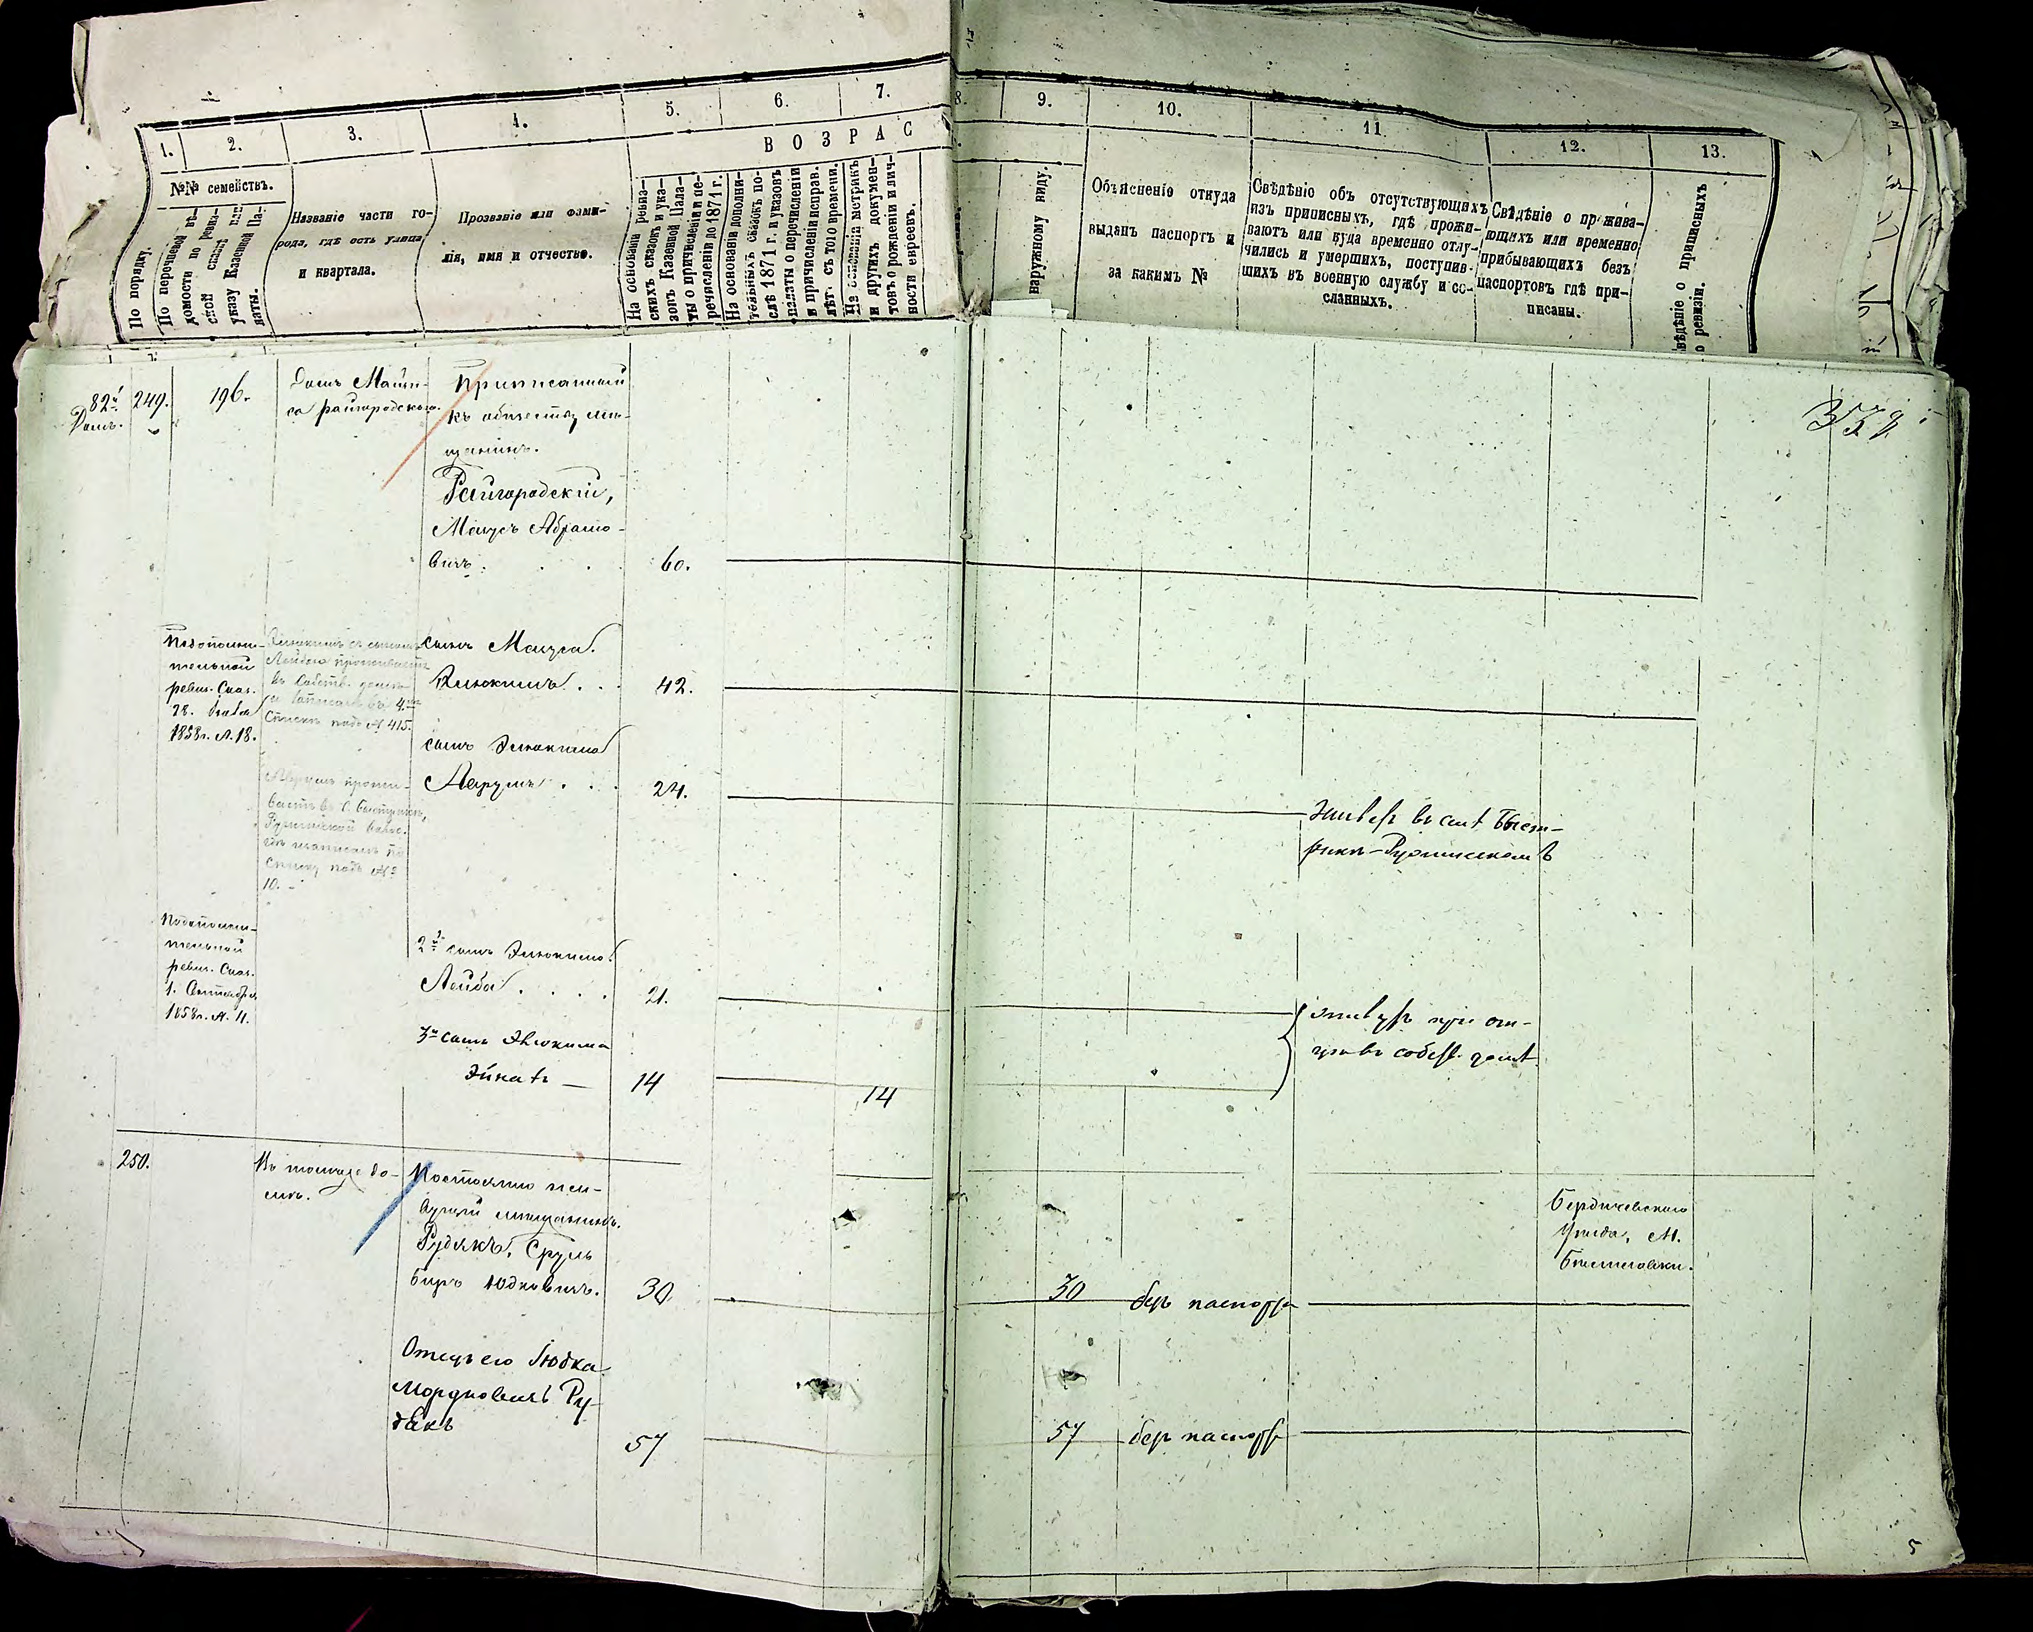 1.
2.
3.
4.
5.
6.
7.
8.
9.
10.
11.
12.
13.
ВОЗРАС
№№ семействъ.
По порядку.
По перечневой вѣ-
домости по ревиз-
ской сказкѣ или
указу Казенной Па-
латы.
Названіе части го-
рода, гдѣ есть улица
и квартала.
Прозваніе или фами-
лія, имя и отчество.
На основаніи ревиз-
скихъ сказокъ и ука-
зовъ Казенной Пала-
ты о причисленіи и пе-
речисленіи до 1871 г.
На основаніи дополни-
тельныхъ сказокъ по-
слѣ 1871 г. и указовъ
палаты о перечисленіи
и причисленіи исправ.
лѣт. съ того времени.
На основаніи метрикъ
и другихъ докумен-
товъ о рожденіи и лич-
ности евреевъ.
наружному виду.
Объясненіе откуда
выданъ паспортъ и
за какимъ №
Свѣдѣніе объ отсутствующихъ
изъ приписныхъ, гдѣ прожи-
ваютъ или куда временно отлу-
чились и умершихъ, поступив-
шихъ въ военную службу и со-
сланныхъ.
Свѣдѣніе о прожива-
ющихъ или временно
прибывающихъ безъ
паспортовъ гдѣ при-
писаны.
вѣдѣніе о приписныхъ
о ревизіи.
82й
Домъ.
249.
196.
Домъ Ману-
са Райгородскаго.
Приписанный
къ обществу мѣ-
щанинъ.
Райгородскій,
Манусъ Абрамо-
вичъ.
60.
352
Подополни-
тельной
ревиз. Сказ.
28.
1858 г. №. 18.
Элюкимъ съ сыномъ
Лейбою проживаетъ
въ собств. домѣ
и записанъ въ 4мъ
спискѣ подъ № 415.
сынъ Мануса
Элюкимъ . . .
42.
сынъ Элюкима
Аврумъ . . .
24.
Аврумъ прожи-
ваетъ въ с. Быстрикѣ,
Ружинской волос.
списку подъ №
10.
живетъ въ селѣ Быст-
рикѣ-Ружинскомъ
Подополни-
тельной
ревиз. Сказ.
1. Сентября
1858 г. №. 11.
2й сынъ Элюкима
Лейба . . . .
21.
3й сынъ Элюкима
Эйна
14
14
живутъ при от-
цѣ въ собств. домѣ
250.
Въ томъ же до-
мѣ.
Постоянно жи-
вущій мѣщанинъ.
Рудякъ, Сруль
Беръ Юдковичъ.
30
30
безъ паспорта
Бердичевскаго
Уѣзда, М.
Отецъ его Юдка
Мордковичъ Ру-
дякъ
57
57
безъ паспорта
5